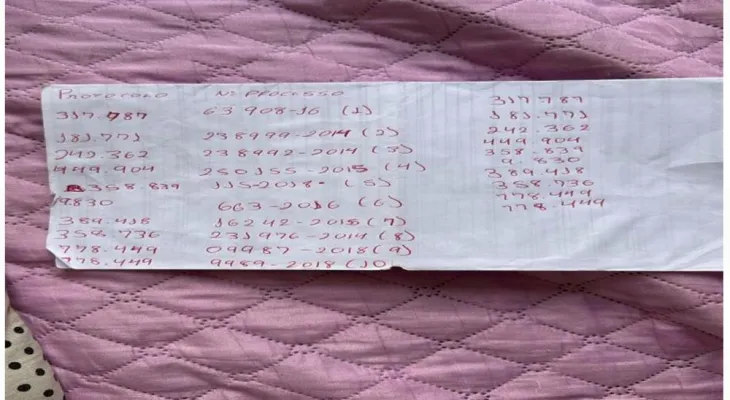 PROTOCOLO Nº PROCESSO
317.787 63908-16 (1) 317787
181.771 238999-2014 (2) 181.771
242.362 238992-2014 (3) 242.362
449.904 250155-2015 (4) 449.904
358.839 115-2018- (5) 358.839
9830 663-2016 (6) 9.830
389.418 16242-2018 (7) 389.418
358.736 231976-2014 (8) 358.736
778.449 09987-2018 (9) 778.449
778.449 9989-2018 (10 778.449